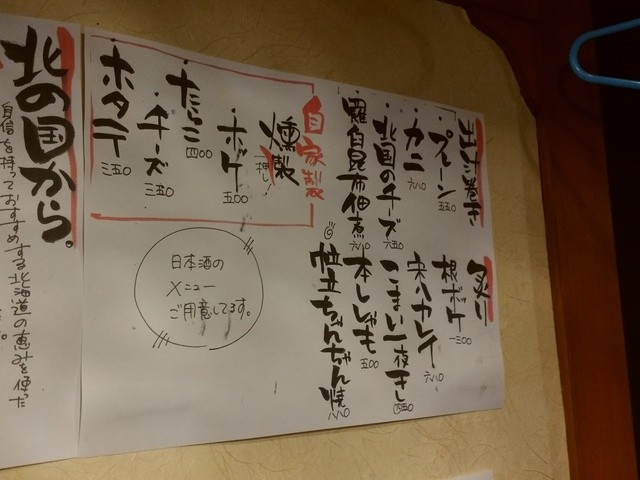 出汁巻き
・プレーン 五五〇
・カニ 六八〇
・北国のチーズ 六五〇
・羅臼昆布佃煮 六八〇
炙り
根ボッケ 一三〇〇
宗八カレイ 六八〇
こまい一夜干し 四五〇
本ししゃも 五〇〇
帆立ちゃんちゃん焼 八八〇
自家製
燻製 一押し!
・ホッケ 五〇〇
・たらこ 四〇〇
・チーズ 三五〇
・ホタテ 三五〇
日本酒の
メニュー
ご用意してます。
北の国から。
自信を持っておすすめする北海道の恵みを使った